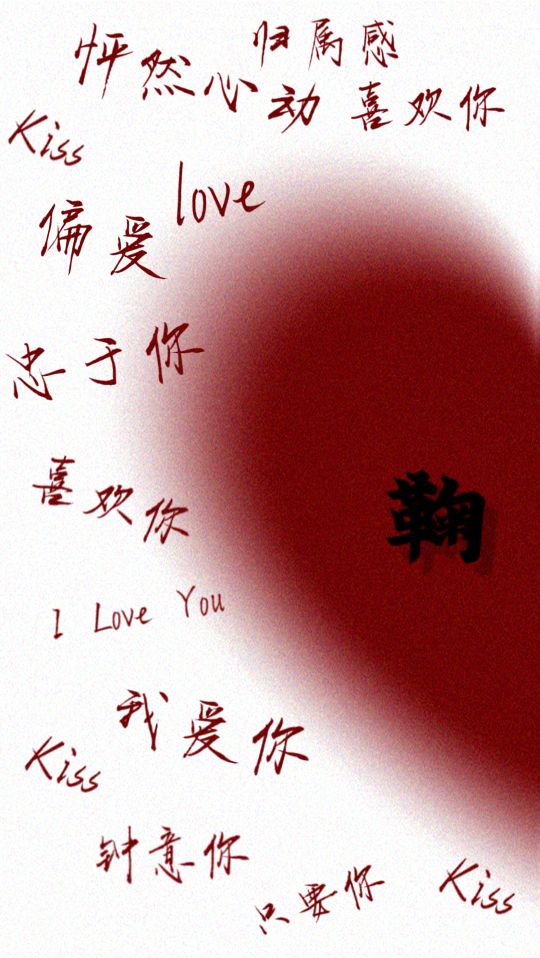 归属感
怦然心动
喜欢你
Kiss
love
偏爱
忠于你
喜欢你
鞠
I Love You
我爱你
Kiss
钟意你
只要你
Kiss